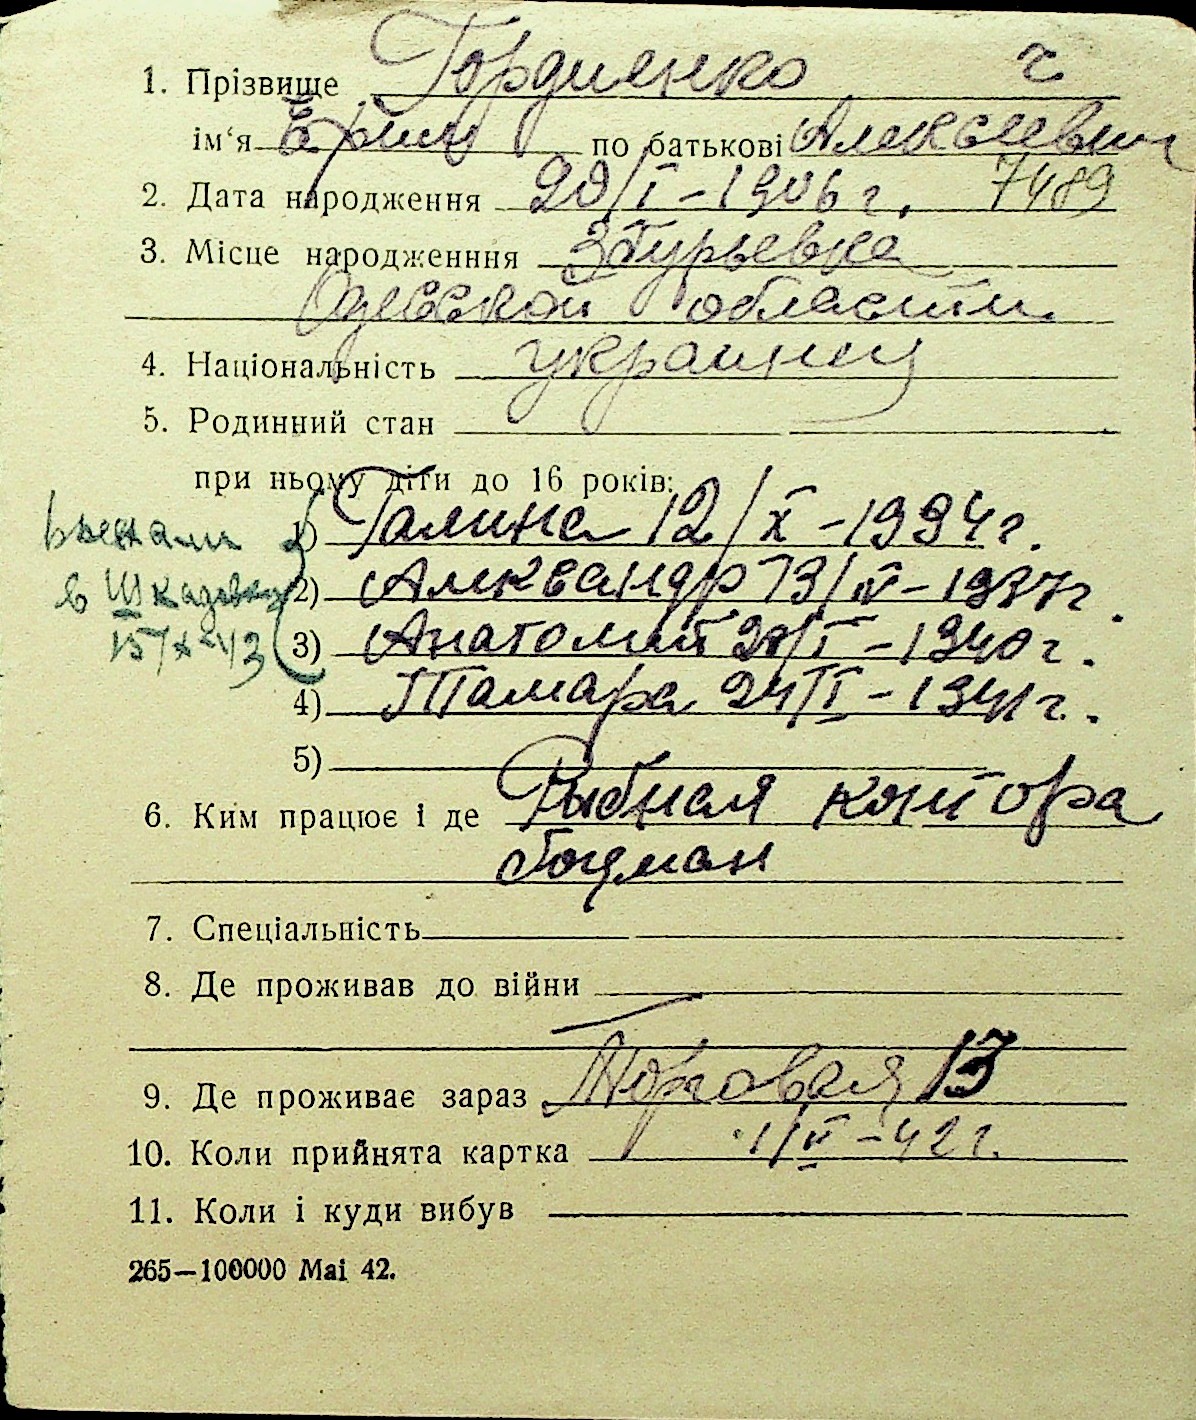 1. Прізвище Гордиенко г
ім‘я Ефим по батькові Алексеевич
2. Дата народження 20/I – 1906 г. 7489
3. Місце народженння Збурьевка
Одесской области
4. Національність украинец
5. Родинний стан
при ньому діти до 16 років:
1) Галина 12/X – 1934 г.
2) Александр 13/IV – 1937 г.
3) Анатолий 20/I – 1940 г.
4) Тамара 24/II – 1941 г.
5)
выехали
в
15/X-43
6. Ким працює і де Рыбная контора
боцман
7. Спеціальність
8. Де проживав до війни
9. Де проживає зараз Торговая 13
10. Коли прийнята картка 1/VI – 42 г.
11. Коли і куди вибув
265—100000 Mai 42.